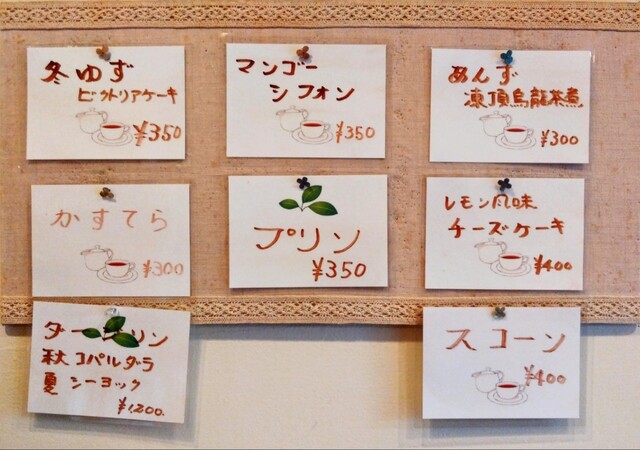 冬ゆず
ビクトリアケーキ
¥350
マンゴー
シフォン
¥350
あんず
凍頂烏龍茶煮
¥300
かすてら
¥300
プリン
¥350
レモン風味
チーズケーキ
¥400
ダージリン
秋 コパルダラ
夏 シーヨック
¥1,200.
スコーン
¥400